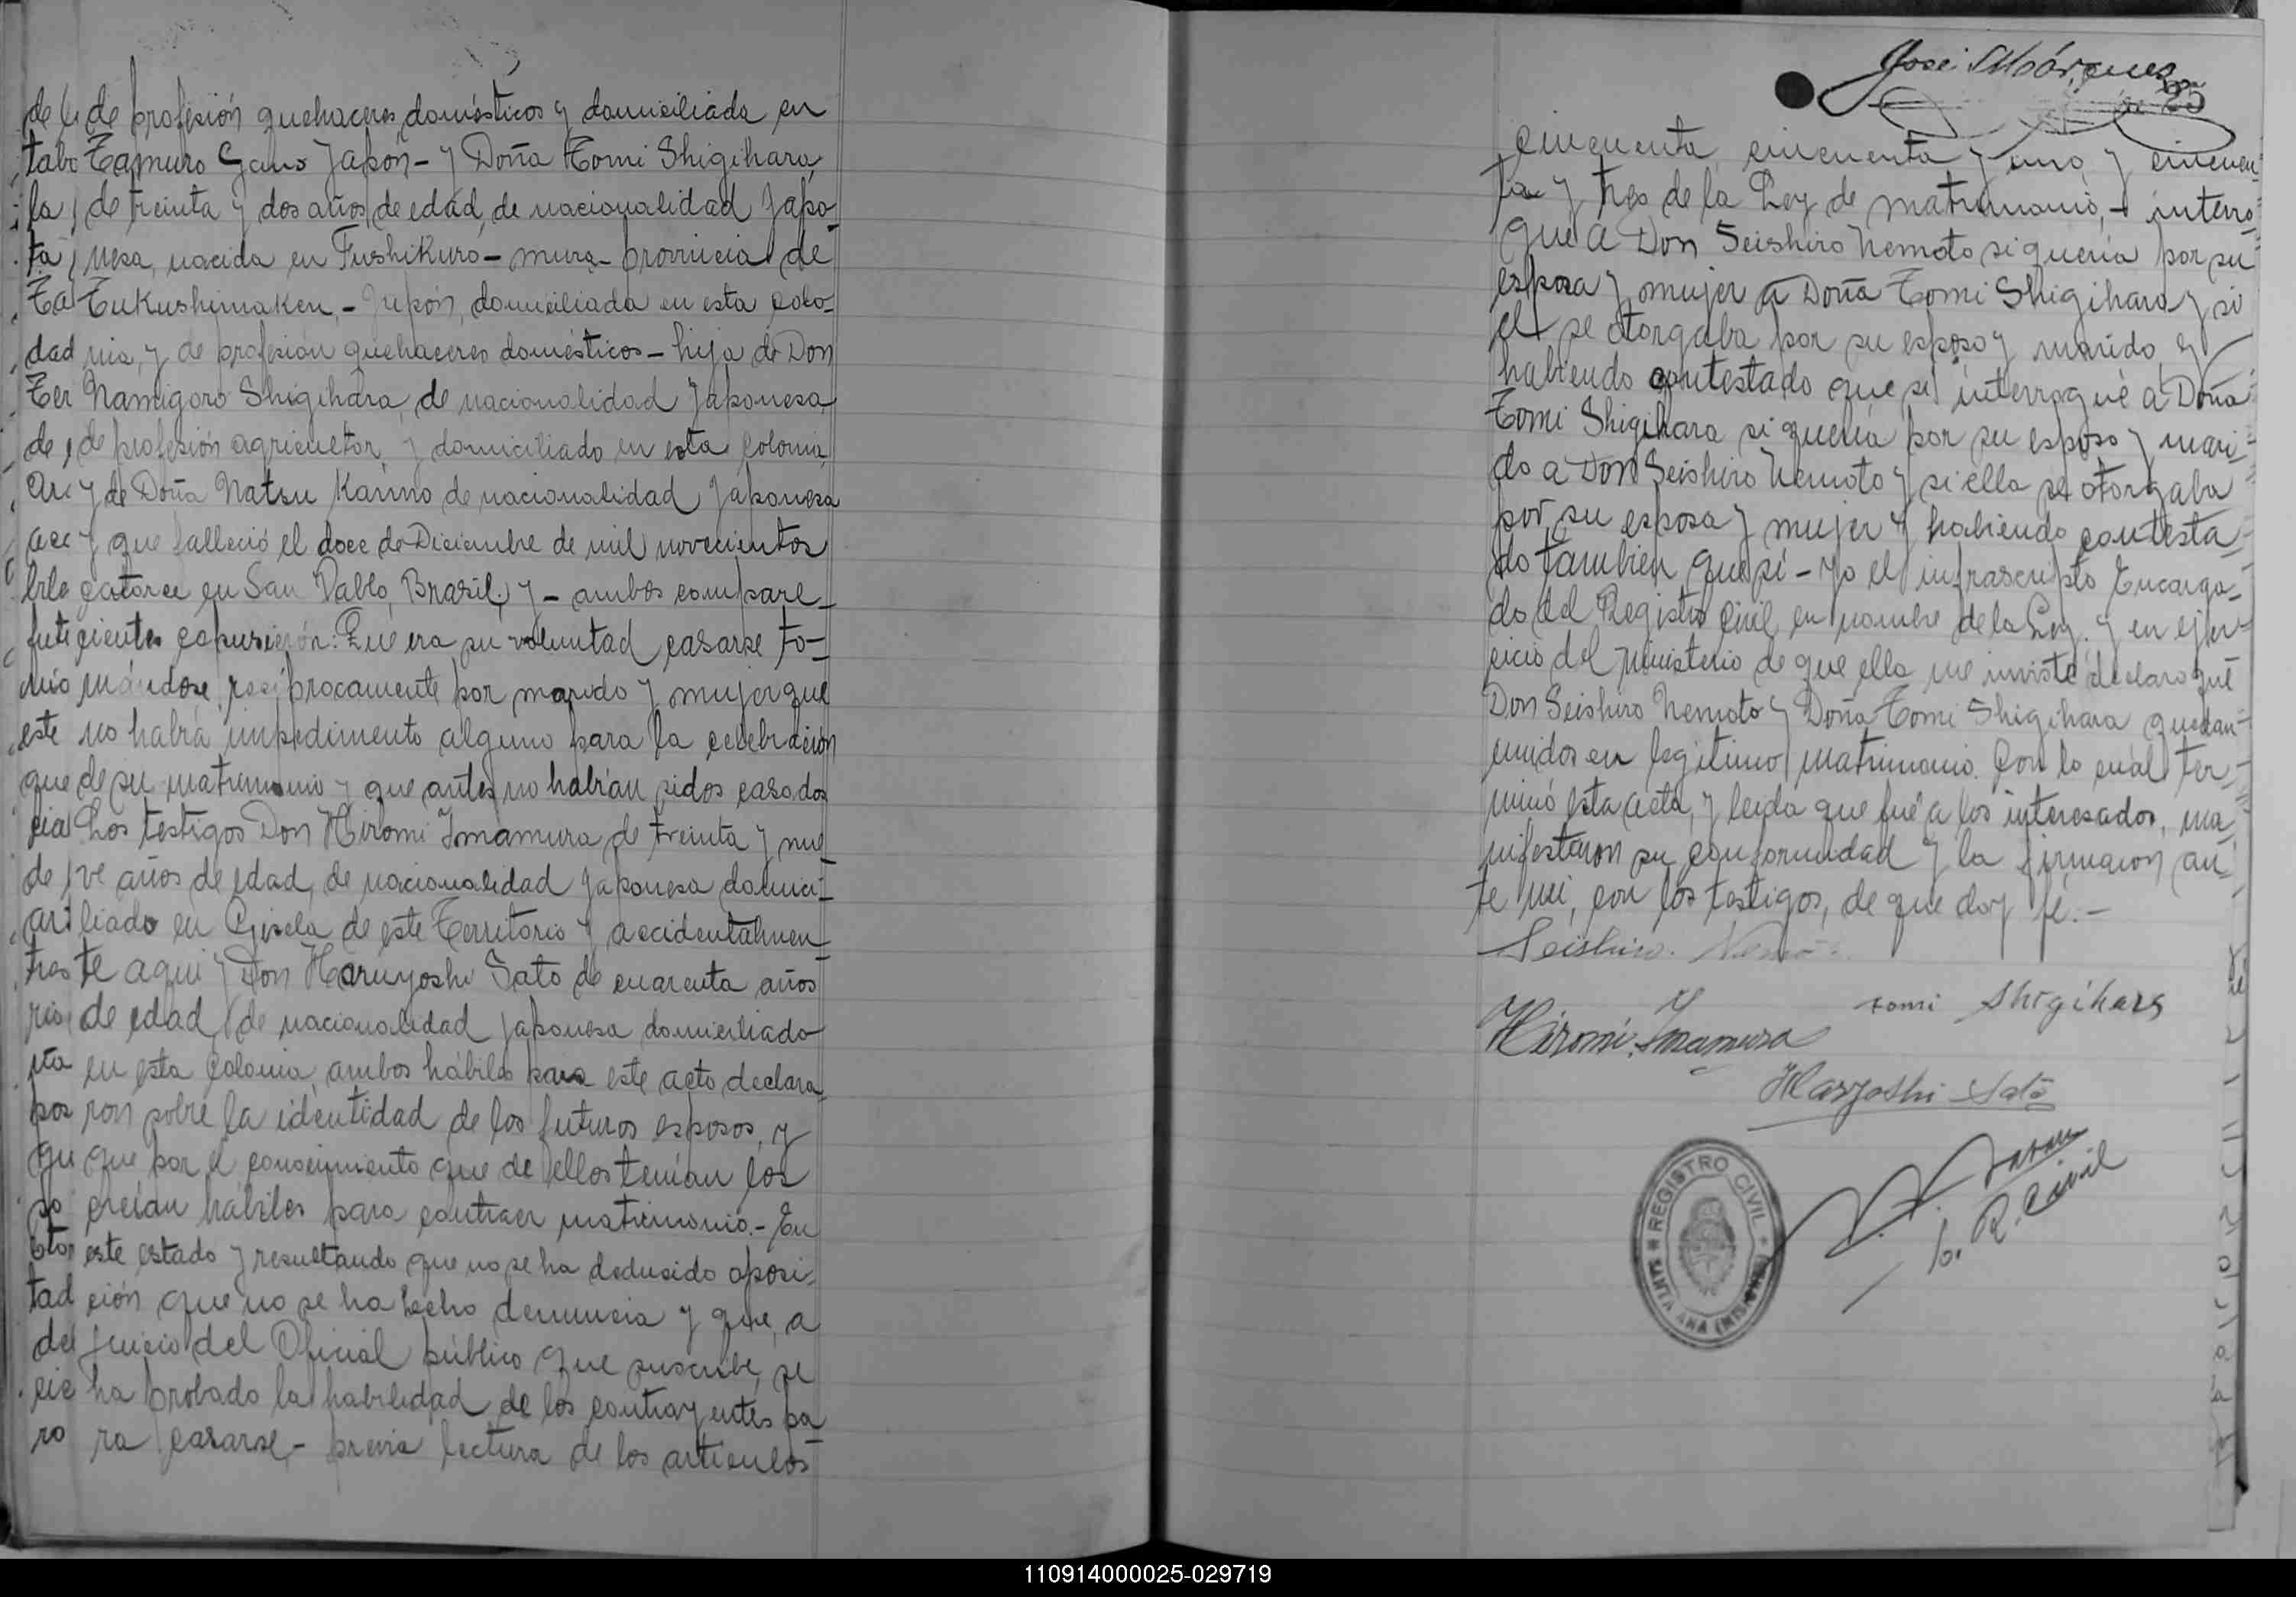 de profesión quehaceres domésticos y domiciliada en
Tamuro Japón - y Doña Tomi Shigihara,
de treinta y dos años, de edad, de nacionalidad japo-
nesa, nacida en Fushikuro - mura - provincia de
Fukushimaken, - Japón, domiciliada en esta Colo-
nia, y de profesión quehaceres domésticos - hija de Don
Namigoro Shigihara, de nacionalidad japonesa,
de profesión agricultor, y domiciliado en esta Colonia,
y de Doña Natsu Kanno de nacionalidad japonesa
y que falleció el doce de Diciembre de mil novecientos
catorce en San Pablo, Brasil, y - ambos compare-
cientes expusieron: Que era su voluntad casarse to-
mándose reciprocamente por marido y mujer que
no habrá impedimento alguno para la celebración
de su matrimonio y que antes no habían sidos casados
Los testigos Don Hiromi Imamura de treinta y nue-
ve años de edad, de nacionalidad japonesa domici-
liado en Gisela de este Territorio y accidentalmen-
te aqui y Don Haruyoshi Sato de cuarenta años
de edad, de nacionalidad japonesa domiciliado
en esta Colonia, ambos hábiles para este acto declara-
ron sobre la identidad de los futuros esposos, y
que por el conocimiento que de ellos tenían los
creían hábiles para contraer matrimonio. - En
este estado y resultando que no se ha deducido oposi-
ción que no se ha hecho denuncia y que, a
juicio del Oficial público que suscribe, se
ha probado la habilidad de los contrayentes pa
ra casarse, - previa lectura de los artículos
José Márquez
25
cincuenta, cincuenta y uno, y cincuen-
ta y tres de la Ley de matrimonio, - interro-
gué a Don Seishiro Nemoto si quería por su
esposa y mujer a Doña Tomi Shigihara y si
el se otorgaba por su esposo y marido, y
habiendo contestado que sí interrogué a Doña
Tomi Shigihara si quería por su esposo y mari-
do a Don Seishiro Nemoto y si ella se otorgaba
por su esposa y mujer y habiendo contesta-
do tambien que sí - yo el infrascripto Encarga-
do del Registro Civil, en nombre de la Ley, y en ejer-
cicio del ministerio de que ella me inviste declaro que
Don Seishiro Nemoto y Doña Tomi Shigihara quedan
unidos en legítimo matrimonio. Con lo cuál ter-
minó esta acta, y leída que fué a los interesados, ma
nifestaron su conformidad y la firmaron an-
te mi, con los testigos, de que doy fé. -
Seishiro. Nemo
Tomi Shigihara
Hiromi Imamura
Haryoshi Sato
R. Civil
REGISTRO CIVIL
SANTA ANA (MISIONES)
110914000025-029719